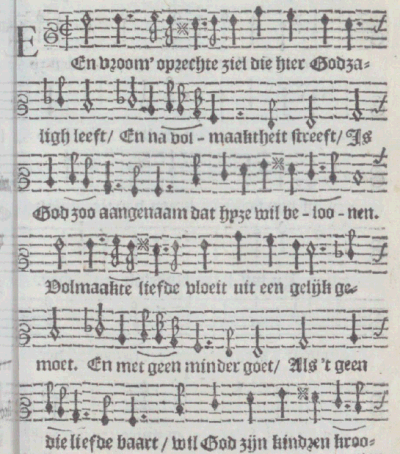 En vroom' oprechte ziel die hier Godza-
ligh leeft/ En na vol - maaktheit streeft/ Is
God zoo aangenaam dat hyze wil be - loo - nen.
Volmaakte liefde vloeit uit een gelijk ge-
moet. En met geen minder goet/ Als 't geen
die liefde baart/ wil God zijn kindren kroo-